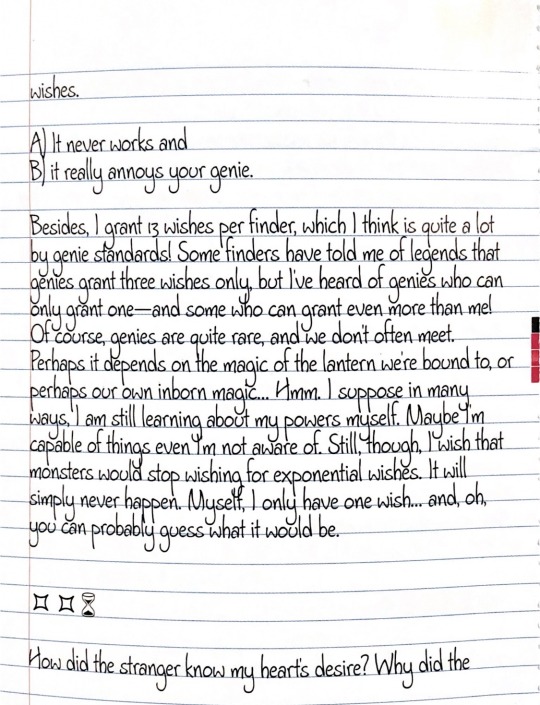 wishes.
A) It never works and
B) it really annoys your genie.
Besides, I grant 13 wishes per finder, which I think is quite a lot
by genie standards! Some finders have told me of legends that
genies grant three wishes only, but I've heard of genies who can
only grant one—and some who can grant even more than me!
Of course, genies are quite rare, and we don't often meet.
Perhaps it depends on the magic of the lantern we're bound to, or
perhaps our own inborn magic... Hmm. I suppose in many
ways, I am still learning about my powers myself. Maybe I'm
capable of things even I'm not aware of. Still, though, I wish that
monsters would stop wishing for exponential wishes. It will
simply never happen. Myself, I only have one wish... and, oh,
you can probably guess what it would be.
How did the stranger know my heart's desire? Why did the